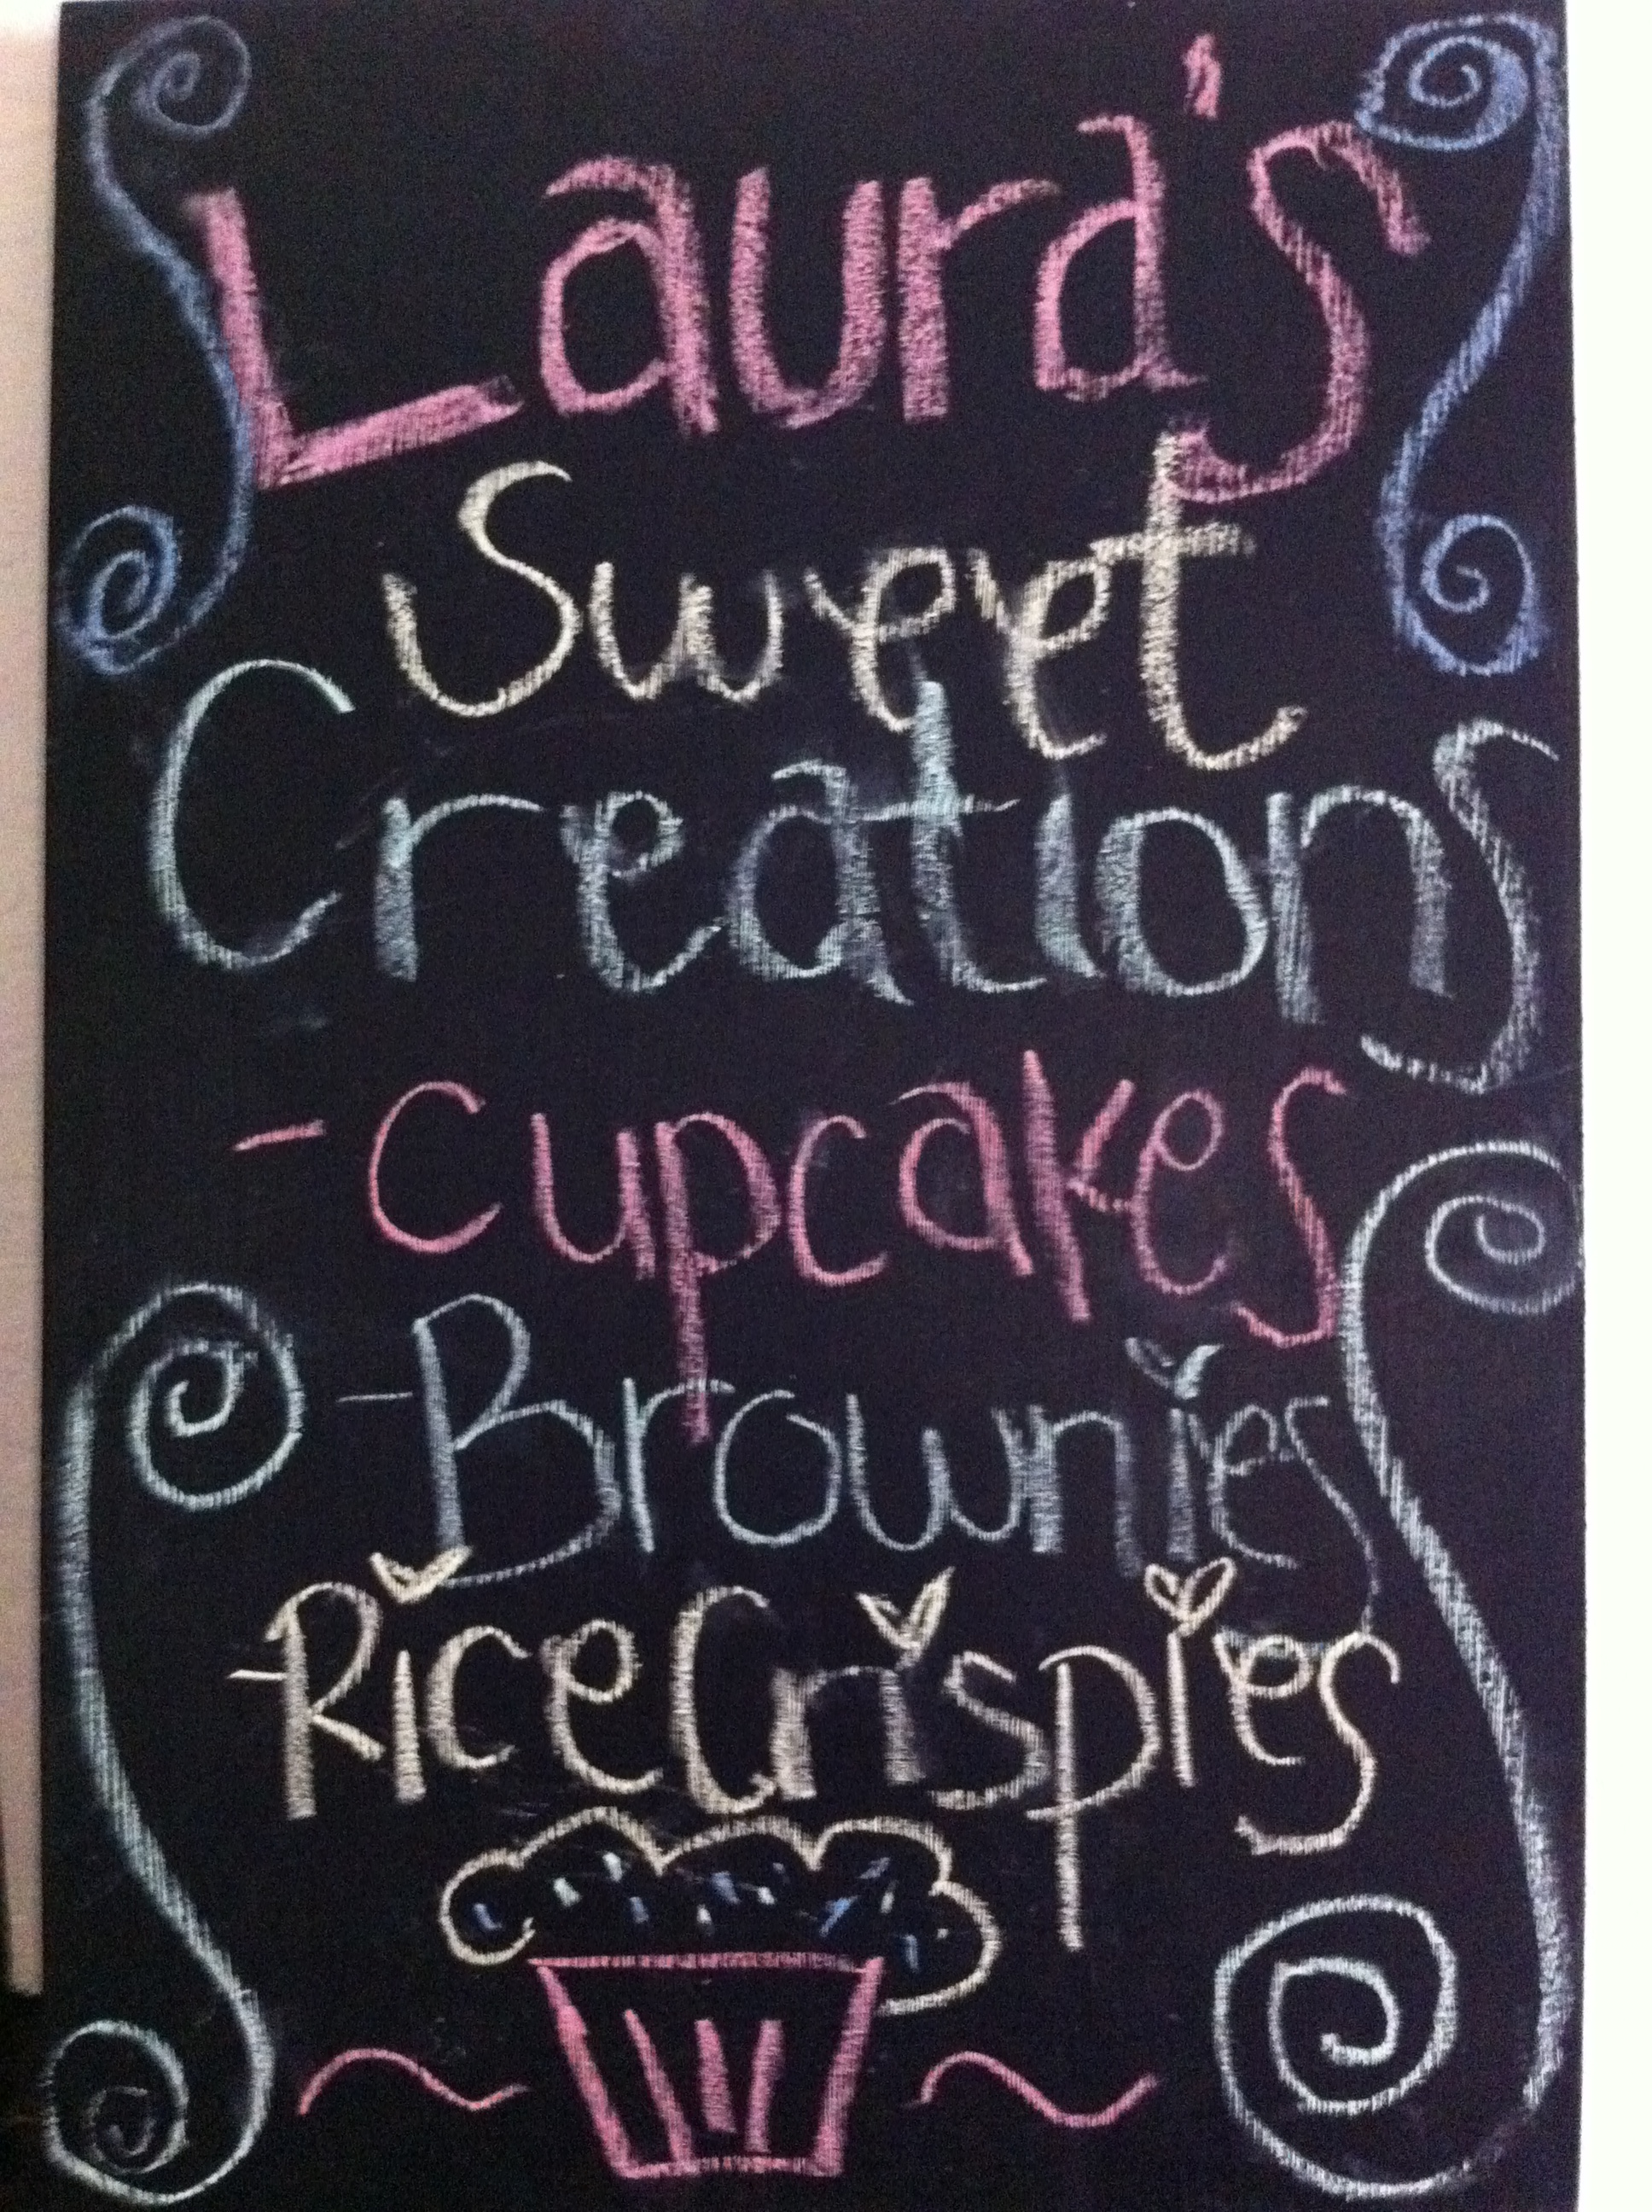 Laura's
Sweet
Creations
- Cupcakes
- Brownies
- Rice Crispies